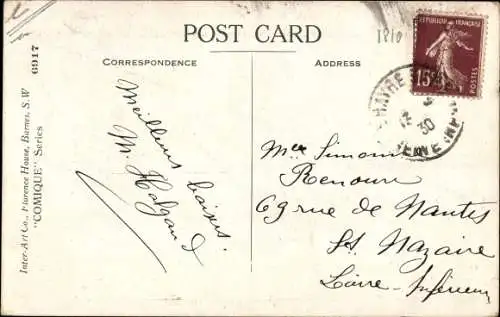 POST CARD
CORRESPONDENCE
ADDRESS
1810
6917
Inter-Art Co., Florence House, Barnes, S.W
"COMIQUE" Series
RÉPUBLIQUE FRANÇAISE
15c
POSTES
HAVRE
30
Meilleurs baisers.
M.
Mlle Simone
Renoux
69 rue de Nantes
St. Nazaire
Loire-Inférieure